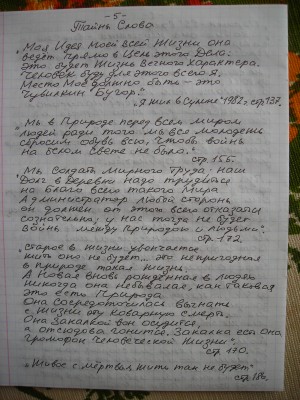 - 5 -
Тайны Слова
„Моя Идея моей всей Жизни она
ведёт прямо в Цель этого Дела.
Это будет Жизнь Вечного Характера.
Человек буду для этого всего Я.
Место моё должно быть – это
Чувилкин Бугор."
„Я жил в Сумине" 1982 г стр 137.
„Мы в Природе перед всем миром
людей ради того мы все молодёжь
сбросим обувь всю, чтобы войны
на всём Свете не было."
стр. 155.
„Мы Создать мирного Труда. наш
Долг в Деревне надо трудиться
на Благо всего такого Мира
Администратор любой стороны
он должен от этого всего отказаться
сознательно, и у нас тогда не будет
войны между Природою и людьми".
стр. 172.
„Старое в жизни увенчается
жить оно не будет... это непригодная
в природе такая жизнь
А Новая вновь рождённая в людях
никогда она небывалая, как таковая
это есть Природа
Она сосредоточилась выгнать
с жизни эту коварную смерть.
Она Закалкой вон осудится,
а отсюдова гонится. Закалка есть она
громофон Человеческой Жизни".
стр. 170.
„Живое с мёртвым жить там не будет"
стр. 186.